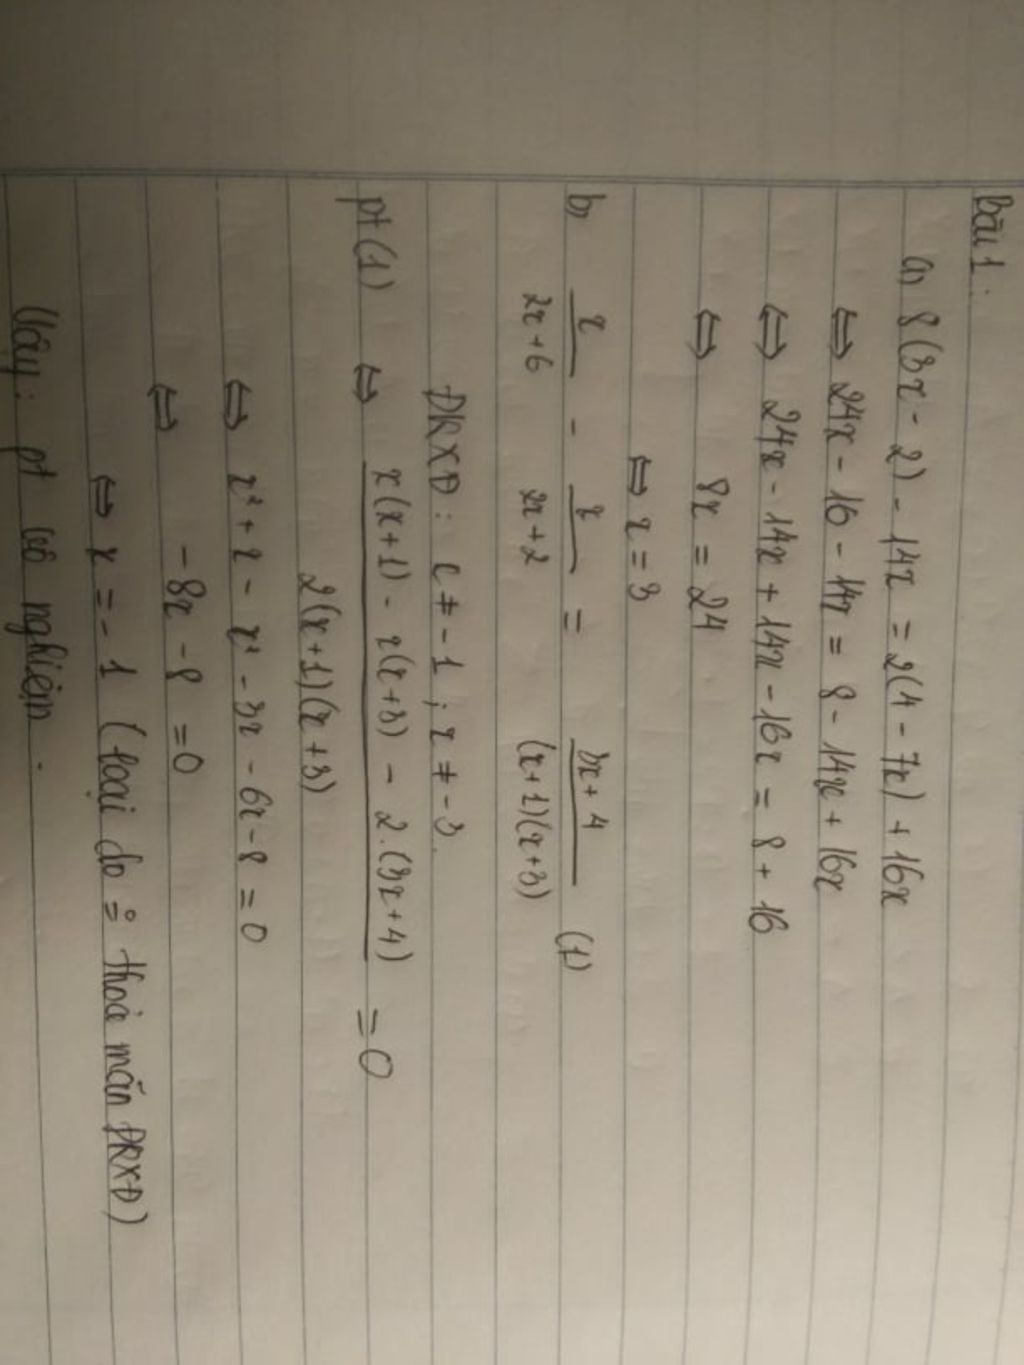 Bài 1:
a, 8(3x - 2) - 14x = 2(4 - 7x) + 16x
⇔ 24x - 16 - 14x = 8 - 14x + 16x
⇔ 24x - 14x + 14x - 16x = 8 + 16
⇔ 8x = 24
⇔ x = 3
b, x/(2x+6) - x/(2x+2) = (3x+4)/((x+1)(x+3)) (1)
ĐKXĐ: x ≠ -1 ; x ≠ -3.
pt (1) ⇔ (x(x+1) - x(x+3) - 2.(3x+4))/(2(x+1)(x+3)) = 0
⇔ x² + x - x² - 3x - 6x - 8 = 0
⇔ -8x - 8 = 0
⇔ x = -1 (loại do thoả mãn ĐKXĐ)
Vậy: pt vô nghiệm.